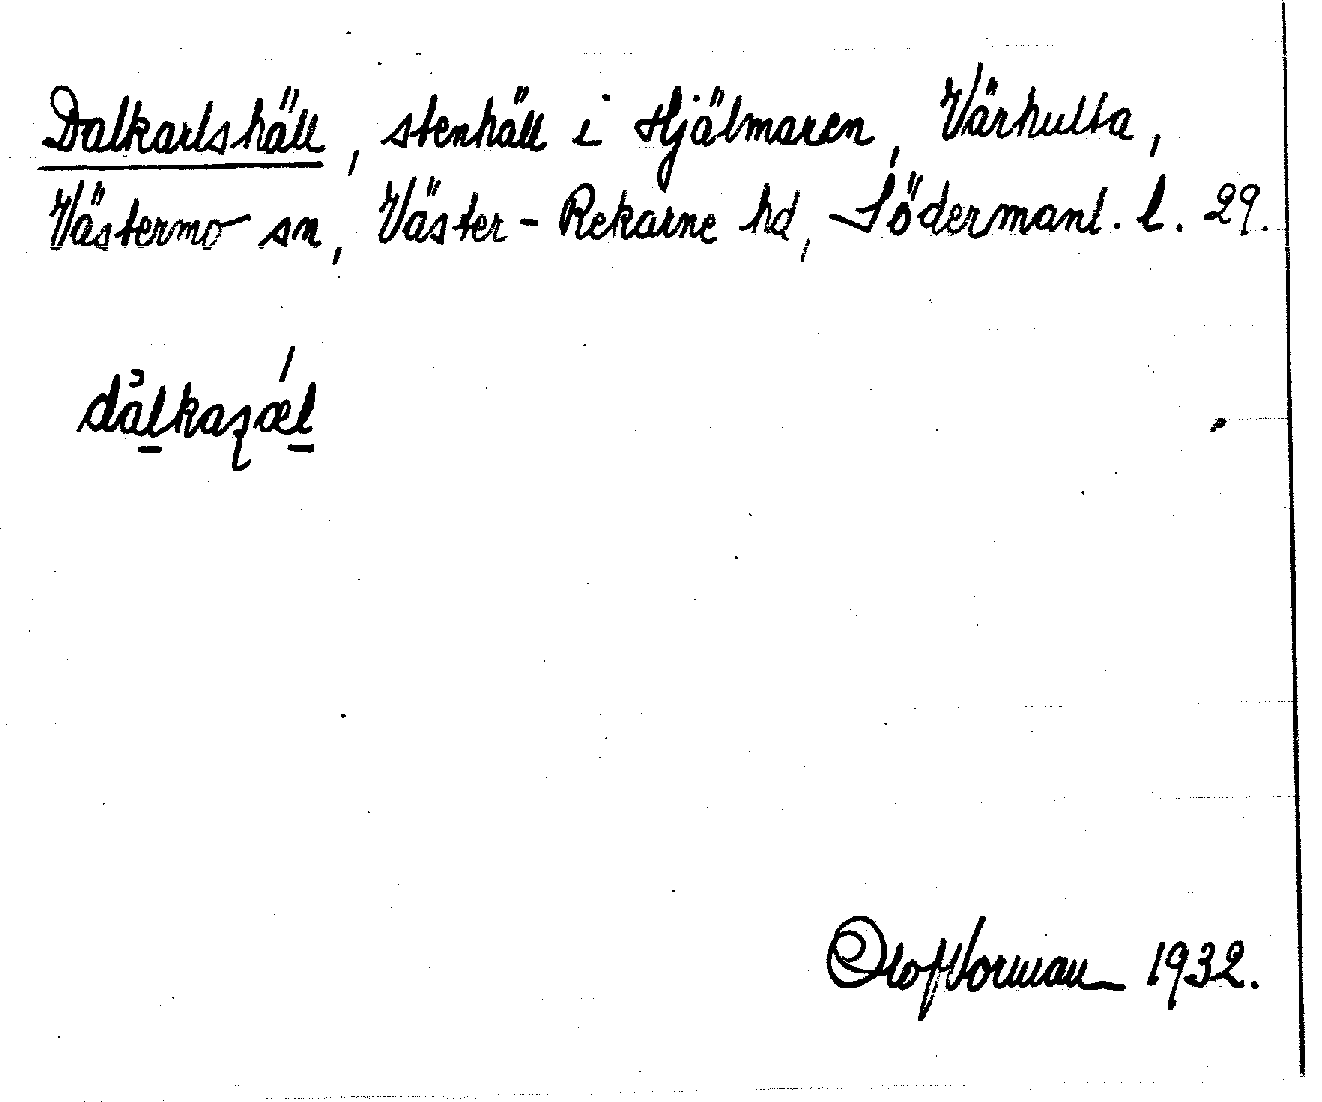 Dalkarlshäll, stenhäll i Hjälmaren, Värhulta,
Västermo sn, Väster-Rekarne hd, Södermanl. l. 29.
Olof Norman 1932.